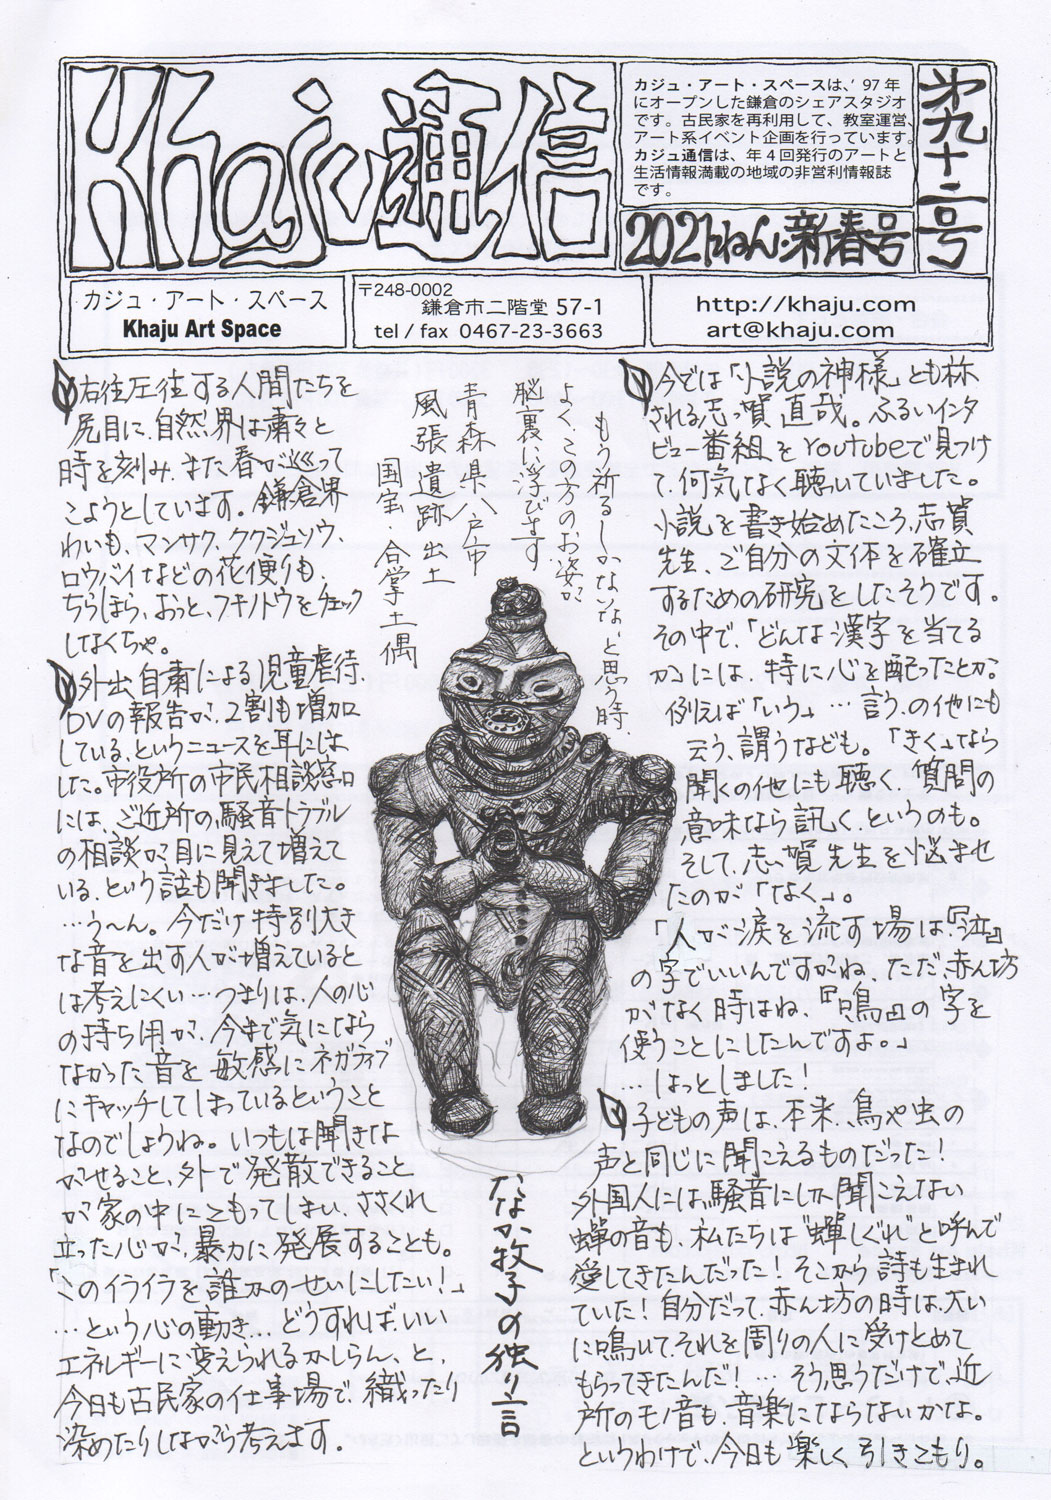 Khaju通信
カジュ・アート・スペースは、'97年
にオープンした鎌倉のシェアスタジオ
です。古民家を再利用して、教室運営、
アート系イベント企画を行っています。
カジュ通信は、年4回発行のアートと
生活情報満載の地域の非営利情報誌
です。
2021ねん・新春号
第九十二号
カジュ・アート・スペース
Khaju Art Space
〒248-0002
鎌倉市二階堂 57-1
tel / fax 0467-23-3663
http://khaju.com
art@khaju.com
右往左往する人間たちを
尻目に、自然界は粛々と
時を刻み、また春が巡って
こようとしています。鎌倉界
わいも、マンサク、ククジュソウ、
ロウバイなどの花便りも、
ちらほら、おっと、フキノトウをチェック
しなくちゃ。
外出自粛による児童虐待、
DVの報告が、2割も増加
している、というニュースを耳にしま
した。市役所の市民相談窓口
には、ご近所の騒音トラブル
の相談が目に見えて増えて
いる、という話も聞きました。
…う〜ん。今だけ特別大き
な音を出す人が増えていると
は考えにくい…つまりは、人の心
の持ち用が、今まで気になら
なかった音を敏感にネガティブ
にキャッチしてしまっているということ
なのでしょうね。いつもは聞きな
がせること、外で発散できること
が家の中にこもってしまい、ささくれ
立った心が、暴力に発展することも。
「このイライラを誰かのせいにしたい！」
…という心の動き…どうすれば、いい
エネルギーに変えられるかしらん、と、
今日も古民家の仕事場で、織ったり
染めたりしながら考えます。
もう祈るしかないな、と思う時、
よく、この方のお姿が
脳裏に浮びます
青森県八戸市
風張遺跡出土
国宝・合掌土偶
なか牧子の独り言
今では「小説の神様」とも称
される志賀直哉。ふるいインタ
ビュー番組をYoutubeで見つけ
て、何気なく聴いていました。
小説を書き始めたころ、志賀
先生、ご自分の文体を確立
するための研究をしたそうです。
その中で、「どんな漢字を当てる
か」には、特に心を配ったとか。
例えば「いう」…言う、の他にも
云う、謂うなども。「きく」なら
聞くの他にも聴く、質問の
意味なら訊く、というのも。
そして、志賀先生を悩ませ
たのが「なく」。
「人が涙を流す場は、『泣』
の字でいいんですがね、ただ、赤ん坊
がなく時はね、『鳴』の字を
使うことにしたんですよ。」
…はっとしました！
子どもの声は、本来、鳥や虫の
声と同じに聞こえるものだった！
外国人には、騒音にしか聞こえない
蝉の音も、私たちは“蝉しぐれ”と呼んで
愛してきたんだった！そこから詩も生まれ
ていた！自分だって、赤ん坊の時は、大い
に鳴いて、それを周りの人に受けとめて
もらってきたんだ！…そう、思うだけで、近
所のモノ音も、音楽にならないかな。
というわけで、今日も楽しく引きこもり。